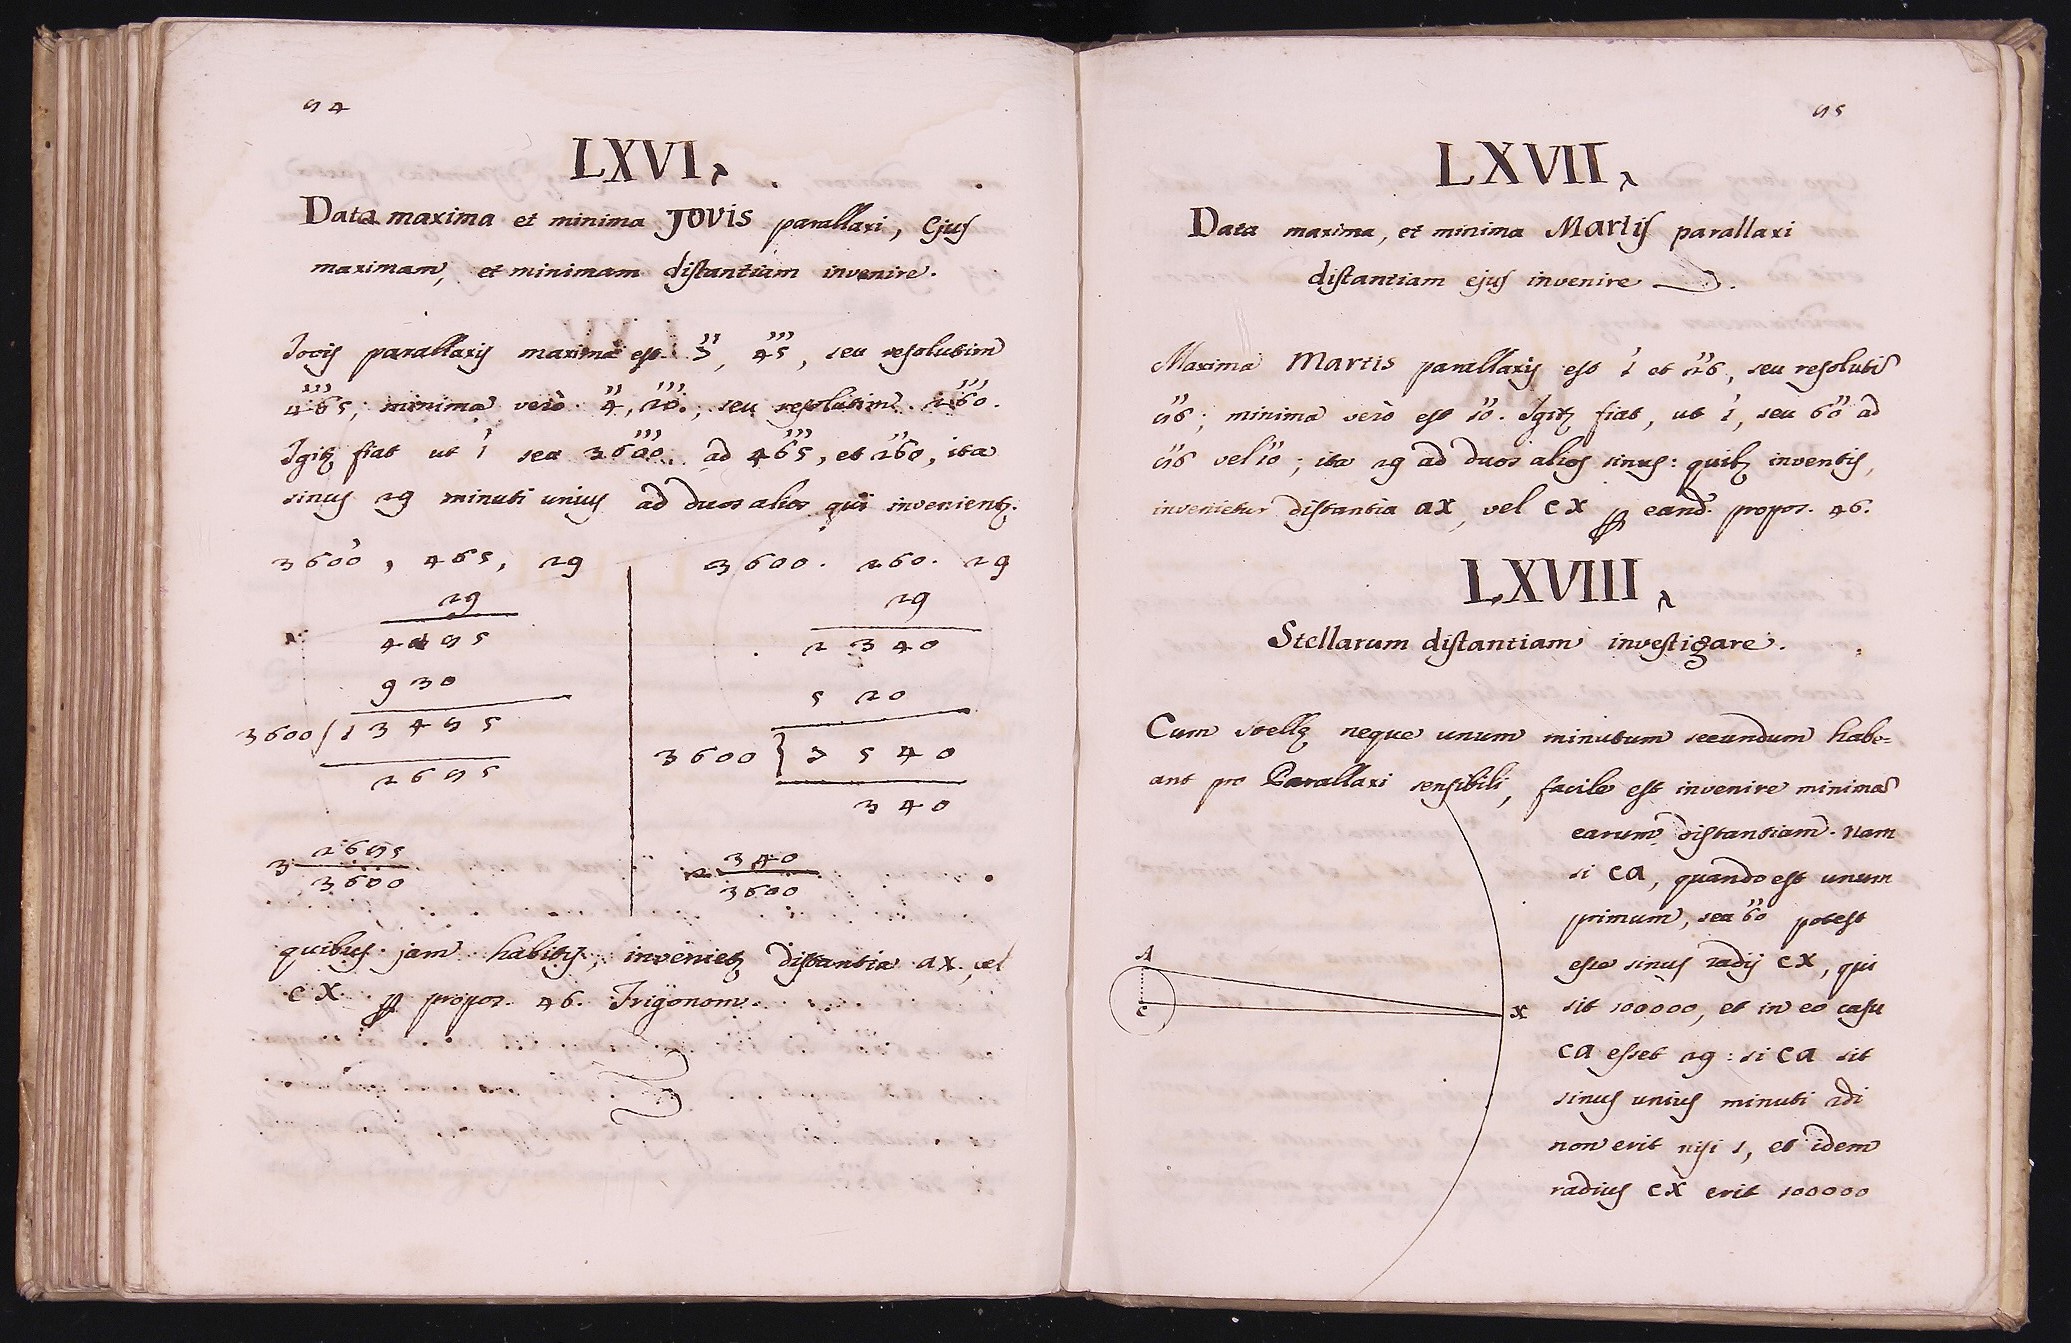 84
LXVI,
Data maxima et minima JOVIS parallaxi, Ejus
maximam, et minimam distantiam invenire.
Jovis parallaxis maxima est 7'', 45''', seu resolutim
465'''; minima verò 4'', 20''', seu resolutim 260'''.
Igitꝫ fiat ut 1' seu 3600''' ad 465''', et 260'', ita
sinus 29 minuti unius ad duos alios qui invenientꝫ.
3600, 465, 29
29
4185
930
3600 / 13485
2685
3 2685
3600
3600. 260. 29
29
2340
520
3600 } 7540
340
2 340
3600
quibus jam habitis, invenietꝫ distantia ax, vel
CX ꝑ propos. 46. Trigonom.
85
LXVII,
Data maxima, et minima Martis parallaxi
distantiam ejus invenire.
Maxima Martis parallaxis est 1' et 26'', seu resolutè
86''; minima verò est 10''. Igitꝫ fiat, ut 1', seu 60'' ad
86'' vel 10''; ita 29 ad duos alios sinus: quibꝫ inventis,
invenietur distantia ax, vel CX ꝑ eand. propos. 46.
LXVIII,
Stellarum distantiam investigare.
Cum stellę neque unum minutum secundum habe=
ant pro Parallaxi sensibili, facile est invenire minimā
earum distantiam. Nam
si CA, quando est unum
primum, seu 60'' potest
esse sinus radij CX, qui
sit 100000, et in eo casu
CA esset 29: si CA sit
sinus unius minuti 2di
non erit nisi 1, et idem
radius CX erit 100000
A
C
X